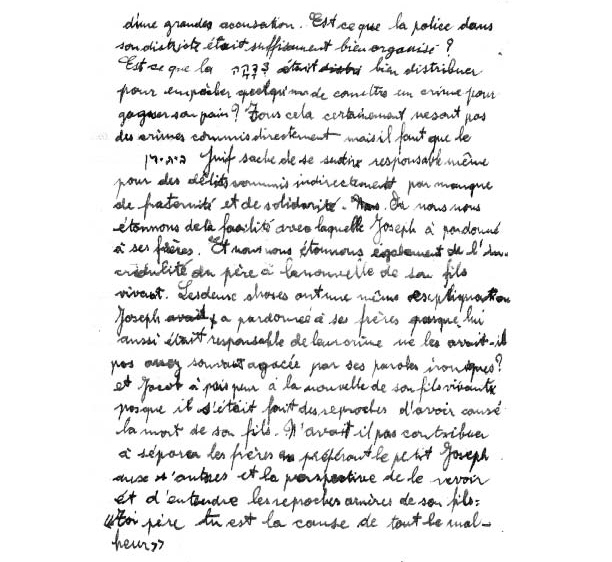 d'une grandes accusation. Est ce que la police dans
son districte était suffisament bien organisé?
Est ce que la צדקה était bien distribuer
pour empaiber quelqu'un de comettre en crime pour
gagner son pain? Tous cela certainement ne sont pas
des crimes commis directement mais il faut que le
Juif sache de se responsable même
pour des délits commis indirectement par manque
de fraternité et de solidarité. nous nous
étonnons de la facilité avec laquelle Joseph à pardonné
à ses frères. Et nous nous étonnons egalement de l'in-
crédulité du père à la nouvelle de son fils
vivant. Les deux choses ont une même
Joseph a pardonneé à ses frères lui
aussi était responsable de leur crime ne les avait-il
pas assez souvant agacée par ses paroles ironiques?
et Jacob à peur à la nouvelle de son fils vivante
il s'était fait des reproches d'avoir causé
la mort de son fils. N'avait il pas contribuer
à séparer les frères préférant le petit Joseph
aux autres et la perspective de le revoir
ét d'entendre les reproches amères de son fils:
"Toi père tu est la cause de tout le mal-
heur"